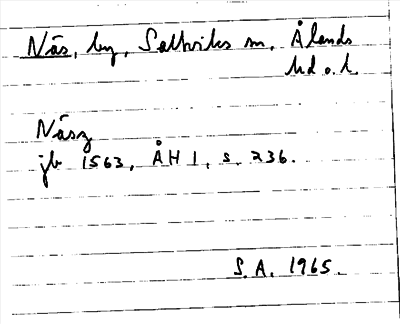 Näs, by, Saltviks sn, Ålands
hd o. l.
Näsz
jb 1563, ÅH 1, s. 236.
S.A. 1965.